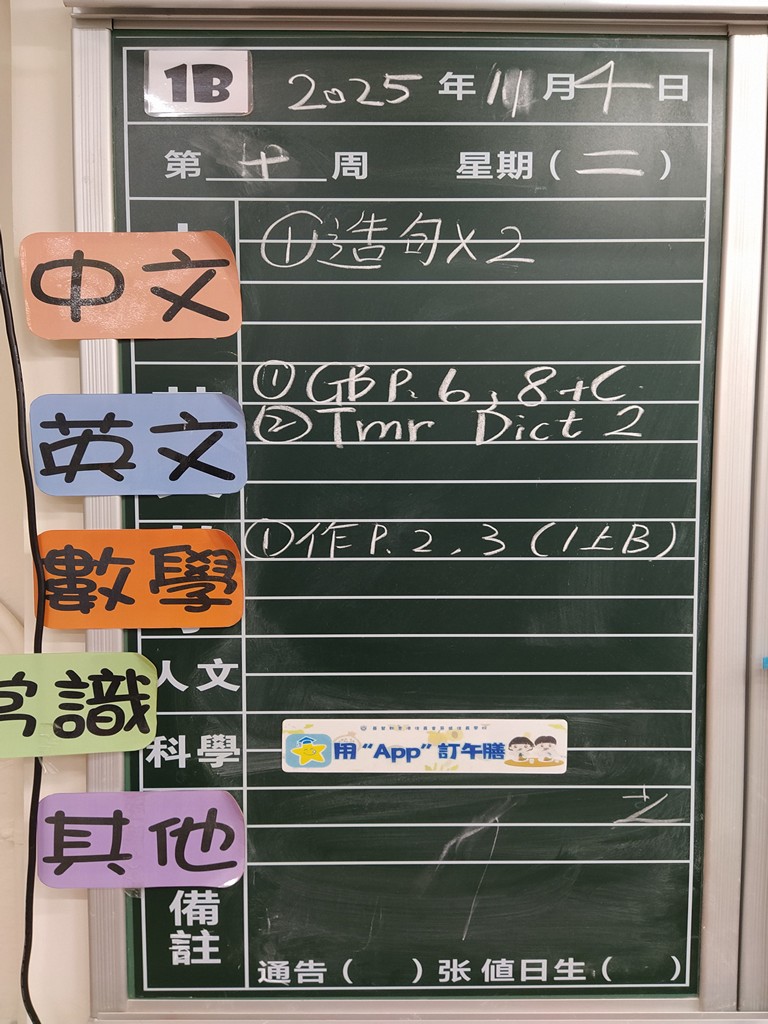 1B 2025 年 11 月 4 日
第 十 周 星期 ( 二 )
中文
① 造句 X 2
英文
① GB P. 6, 8 + C.
② Tmr Dict 2
數學
① 作 P. 2, 3 (1上B)
人文
常識
科學
用 “App” 訂午膳
其他
備註
通告 ( ) 张 值日生 ( )